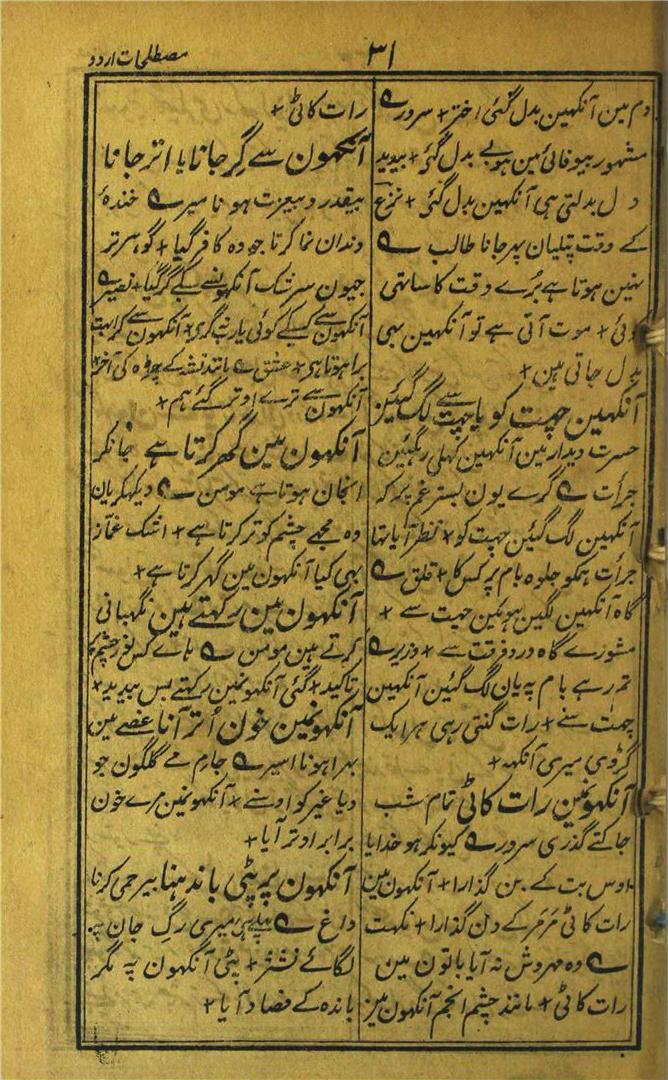 ۳۱
مصطلحات اردو
دم مین آنکھین بدل گئی اختر + سرور ؎
مشہور بیوفائی مین ہو بے بدل گئی +
دل بدلتی ہی آنکھین بدل گئی + نزع
کے وقت پتلیان پھر جانا طالب ؎
نہین ہوتا ہے بُرے وقت کا ساتھی
کوئی + موت آتی ہے تو آنکھین بھی
بدل جاتی ہین +
آنکھین چھت کو یا چھت سے لگ گئین
حسرت دیدار مین آنکھین کھلی رہگئین
جرأت ؎ گرے یون بستر غم پر کہ
آنکھین لگ گئین چھت کو + نظر آیا تھا
جرأت ہمکو جلوہ بام پر کس کا + قلق ؎
گاہ آنکھین لگین ہوئین چھت سے +
مشورے گاہ درد فرقت سے + وزیر ؎
تم رہے بام پہ یان لگ گئین آنکھین
چھت سے + رات گنتی رہی ہر ایک
کڑوی میری آنکھہ +
آنکھونمین رات کاٹی تمام شب
جاگتے گذری سرور ؎ کیونکر ہو خدایا
اوس بت کے بن گذارا + آنکھون مین
رات کاٹی مر مر کے دن گذارا + نکہت
؎ وہ مہروش نہ آیا باتون مین
رات کاٹی + مانند چشم انجم آنکھون مین
رات کاٹی +
آنکھون سے گِر جانا یا اتر جانا
بیقدر و بیعزت ہونا میر ؎ خندۂ
دندان نما کرتا جو وہ کافر گیا + گوہر تر
جیون سرشک آنکھونسے سبکے گر گیا + نصیر ؎
آنکھون سے کسیکے کوئی یارب نگری + آنکھون سے گرا بہت
برا ہوتا ہی + عشق ؎ مانند نشہ کے چڑہ کی آخر
آنکھون سے ترے اوتر گئے ہم +
آنکھون مین گھر کرتا ہے جانکر
انجان ہوتا ہے مومن ؎ دیکھہ گریان
وہ مجھے چشم کو تر کرتا ہے + اشک غمّاز
بھی کیا آنکھون مین گھر کرتا ہے +
آنکھون مین رکھتے ہین نگہبانی
کرتے ہین مومن ؎ ہاے کس نور چشم
تاکید + گئی آنکھونمین رکھتے بس
آنکھونمین خون اُتر آنا غصے مین
بھرا ہونا اسیر ؎ جام مے گلگون جو
دیا غیر کو اوسنے + آنکھونمین مرے خون
برابر اوتر آیا +
آنکھون پر پٹی باندھنا بیرحمی کرنا
داغ ؎ پہلے ہی میری رگِ جان پہ
لگائے نشتر + پٹی آنکھون پہ مگر
باندہ کے فصاد آیا +